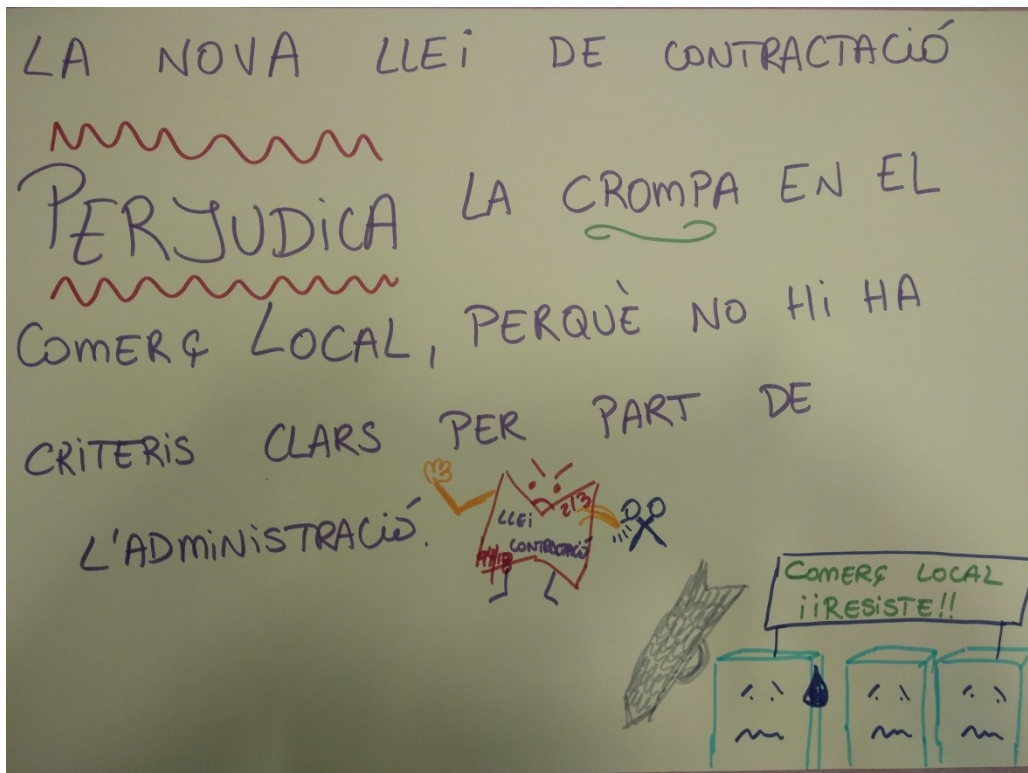 LA NOVA LLEi DE CONTRACTACiÓ
PERJUDiCA LA CROMPA EN EL
COMERÇ LOCAL, PERQUÈ NO Hi HA
CRiTERiS CLARS PER PART DE
L'ADMiNiSTRACiÓ.
2/3
LLEi
CONTRACTACiÓ
COMERÇ LOCAL
¡¡RESiSTE!!